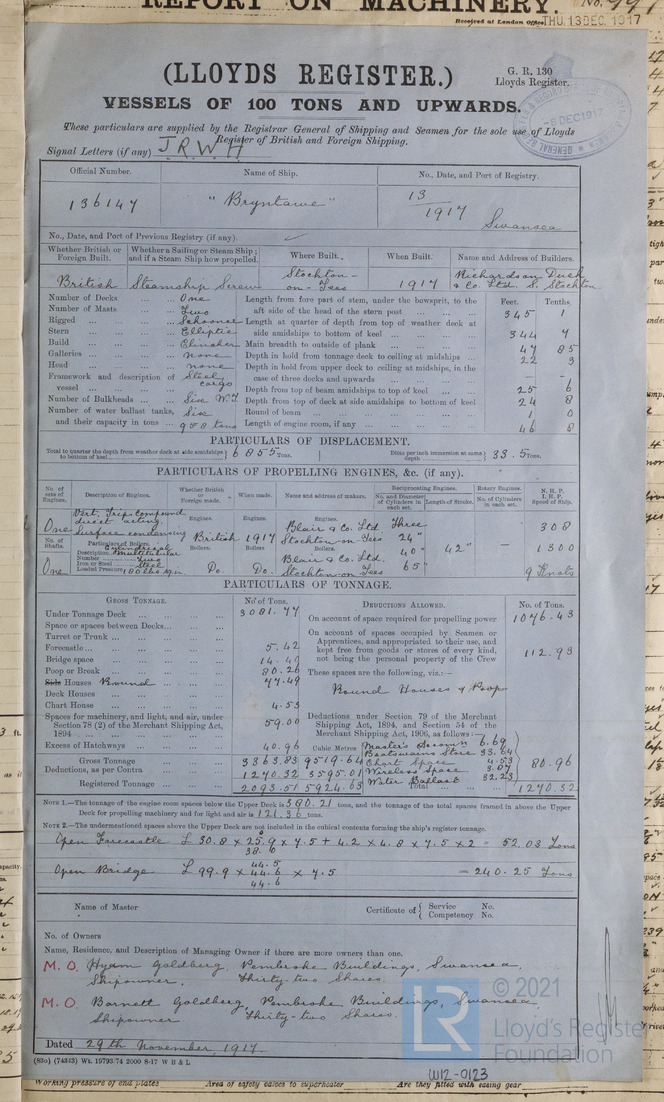 REPORT ON MACHINERY.
No. 991
Received at London Office THU. 13 DEC. 1917
(LLOYDS REGISTER.)
G. R. 130
Lloyds Register.
VESSELS OF 100 TONS AND UPWARDS.
-8 DEC 1917
These particulars are supplied by the Registrar General of Shipping and Seamen for the sole use of Lloyds
Register of British and Foreign Shipping.
Signal Letters (if any) J.R.W.H
Official Number. Name of Ship. No., Date, and Port of Registry.
136147 "Bryntawe" 13/1917 Swansea
No., Date, and Port of Previous Registry (if any).
Whether British or Foreign Built. Whether a Sailing or Steam Ship; and if a Steam Ship how propelled. Where Built. When Built. Name and Address of Builders.
British Steamship Screw Stockton-on-Tees 1917 Richardson Duck & Co Ltd S. Stockton
Number of Decks ... One
Number of Masts ... Two
Rigged ... Schooner
Stern ... Elliptic
Build ... Clincher
Galleries ... none
Head ... none
Framework and description of vessel ... Steel, cargo
Number of Bulkheads ... Six W.T
Number of water ballast tanks, Six
and their capacity in tons ... 958 tons
Feet. Tenths.
Length from fore part of stem, under the bowsprit, to the
aft side of the head of the stern post 345 1
Length at quarter of depth from top of weather deck at
side amidships to bottom of keel 344 7
Main breadth to outside of plank 47 85
Depth in hold from tonnage deck to ceiling at midships 22 3
Depth in hold from upper deck to ceiling at midships, in the
case of three decks and upwards -
Depth from top of beam amidships to top of keel 25 6
Depth from top of deck at side amidships to bottom of keel 24 8
Round of beam 1 0
Length of engine room, if any 46 8
PARTICULARS OF DISPLACEMENT.
Total to quarter the depth from weather deck at side amidships to bottom of keel 6855 Tons. Ditto per inch immersion at same depth 33.5 Tons.
PARTICULARS OF PROPELLING ENGINES, &c. (if any).
No. of sets of Engines. Description of Engines. Whether British or Foreign made. When made. Name and address of makers. Reciprocating Engines. No. and Diameter of Cylinders in each set. Length of Stroke. Rotary Engines. No. of Cylinders in each set. N. H. P. I. H. P. Speed of Ship.
One Vert. Trip Compound direct acting Surface condensing
Engines. British Engines. 1917 Engines. Blair & Co. Ltd Stockton on Tees Three 24" 40" 65" 42" - 308 1300 9 Knots
No. of Shafts. Particulars of Boilers.
One Description Cylindrical multitubular
Number Two
Iron or Steel Steel
Loaded Pressure 180 lbs sq in
Boilers. Do. Boilers. Do. Boilers. Blair & Co. Ltd. Stockton-on-Tees
PARTICULARS OF TONNAGE.
GROSS TONNAGE. No. of Tons.
Under Tonnage Deck 3081.77
Space or spaces between Decks
Turret or Trunk
Forecastle 5.42
Bridge space
Poop or Break 80.26
Side Houses Round 77.49
Deck Houses
Chart House 4.53
Spaces for machinery, and light, and air, under
Section 78 (2) of the Merchant Shipping Act,
1894 59.00
Excess of Hatchways 40.96
Cubic Metres
Gross Tonnage 3363.83 9519.64
Deductions, as per Contra 1270.32 3595.01
Registered Tonnage 2093.51 5924.63
DEDUCTIONS ALLOWED. No. of Tons.
On account of space required for propelling power 1076.43
On account of spaces occupied by Seamen or
Apprentices, and appropriated to their use, and
kept free from goods or stores of every kind,
not being the personal property of the Crew 112.93
These spaces are the following, viz.:—
Round Houses & Poop
Deductions under Section 79 of the Merchant
Shipping Act, 1894, and Section 54 of the
Merchant Shipping Act, 1906, as follows:—
Master's Accomn 6.69
Boatswains Store 33.64
Chart Space 4.53
Wireless Space 3.87
Water Ballast 32.23
80.96
Total 1270.32
NOTE 1.—The tonnage of the engine room spaces below the Upper Deck is 380.21 tons, and the tonnage of the total spaces framed in above the Upper
Deck for propelling machinery and for light and air is 121.36 tons.
NOTE 2.—The undermentioned spaces above the Upper Deck are not included in the cubical contents forming the ship's register tonnage.
Open Forecastle
= 52.03 Tons
Open Bridge
= 240.25 Tons
Name of Master Certificate of { Service No. Competency No.
No. of Owners
Name, Residence, and Description of Managing Owner if there are more owners than one.
M.O. Hyam Goldberg, Pembroke Buildings, Swansea,
Shipowner, Thirty-two Shares.
M.O. Barnett Goldberg, Pembroke Buildings, Swansea
Shipowner Thirty-two Shares.
Dated 29th November, 1917.
(83o) (74343) Wt. 19793/74 2000 8-17 W B & L
LR © 2021
Lloyd's Register
Foundation
W12-0123
Working pressure of end plates Area of safety valves to superheater Are they fitted with easing gear